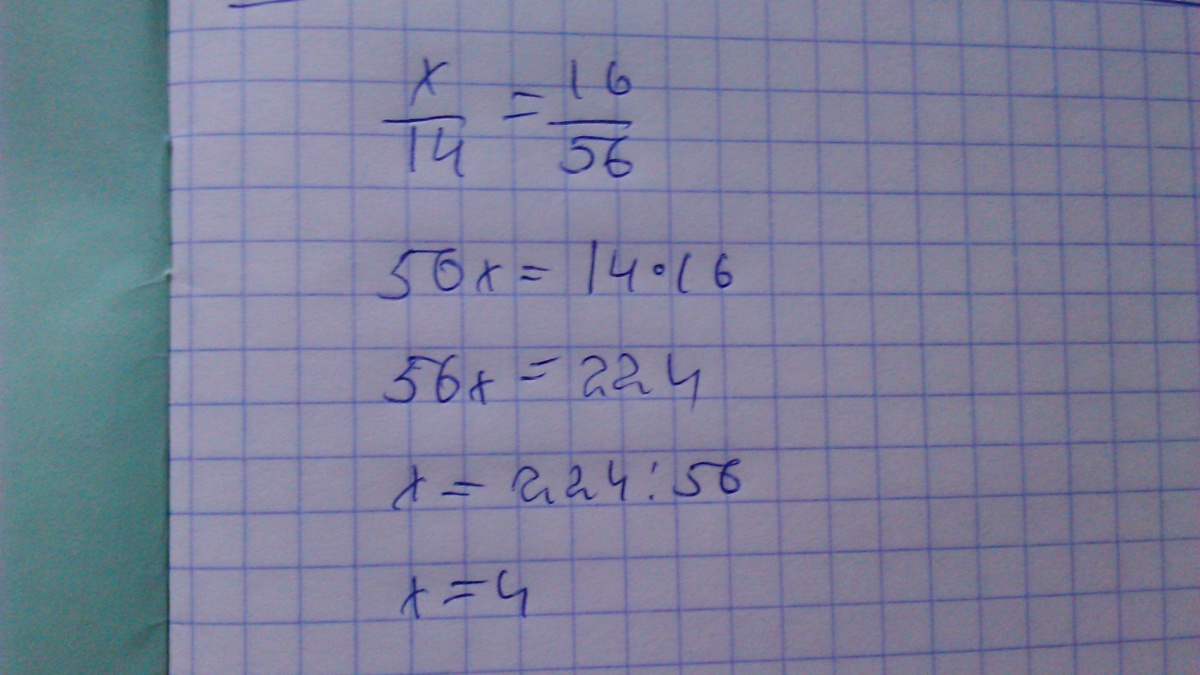 x/14 = 16/56
56x = 14·16
56x = 224
x = 224:56
x = 4